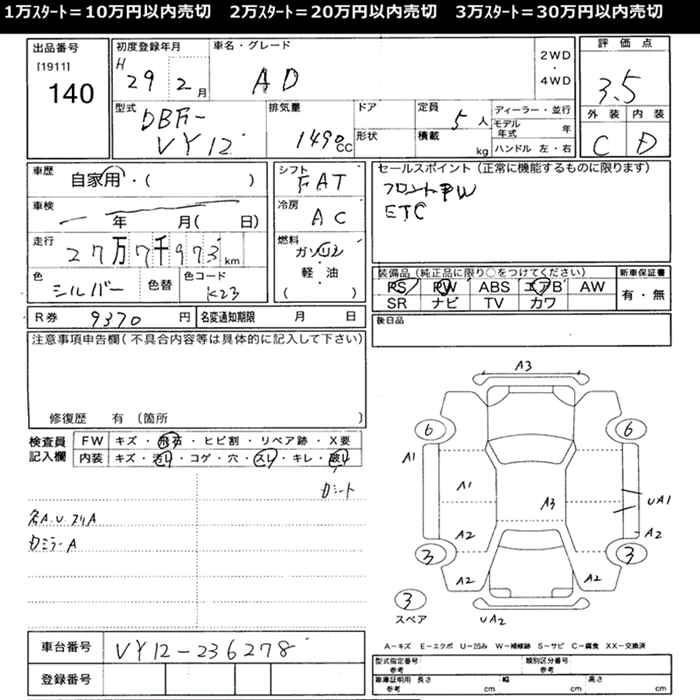 1万ｽﾀｰﾄ＝10万円以内売切　2万ｽﾀｰﾄ＝20万円以内売切　3万ｽﾀｰﾄ＝30万円以内売切
出品番号
[1911]
140
初度登録年月
H 29 2 月
車名・グレード
AD
2WD
・
4WD
評価点
3.5
外装 内装
C D
型式
DBF-
VY12
排気量
1490 CC
ドア
形状
定員
5 人
積載
kg
ディーラー・並行
モデル年式 年
ハンドル 左・右
車歴
自家用・(
車検
年 月( 日)
走行
27万7千973 km
色
シルバー
色替
色コード
K23
シフト
FAT
冷房
AC
燃料
ガソリン
軽油
( )
セールスポイント（正常に機能するものに限ります）
フロントPW
ETC
装備品（純正品に限り○をつけてください）
PS PW ABS エアB AW
SR ナビ TV カワ
新車保証書
有・無
R券 9370 円
名変通知期限 月 日
後日品
注意事項申告欄（不具合内容等は具体的に記入して下さい）
修復歴 有（箇所 ）
検査員
記入欄
FW キズ・飛石・ヒビ割・リペア跡・X要
内装 キズ・汚レ・コゲ・穴・スレ・キレ・破レ
シート
各A.U
ミラーA
A3
6 6
A1
A1
A3
UA1
A2
A2
3 3
A2
A2
3
スペア
UA2
A－キズ E－エクボ U－凹み W－補修跡 S－サビ C－腐食 XX－交換済
車台番号 VY12-236278
登録番号
型式指定番号 参考
類別区分番号 参考
車庫証明用 参考
長さ cm
幅 cm
高さ cm